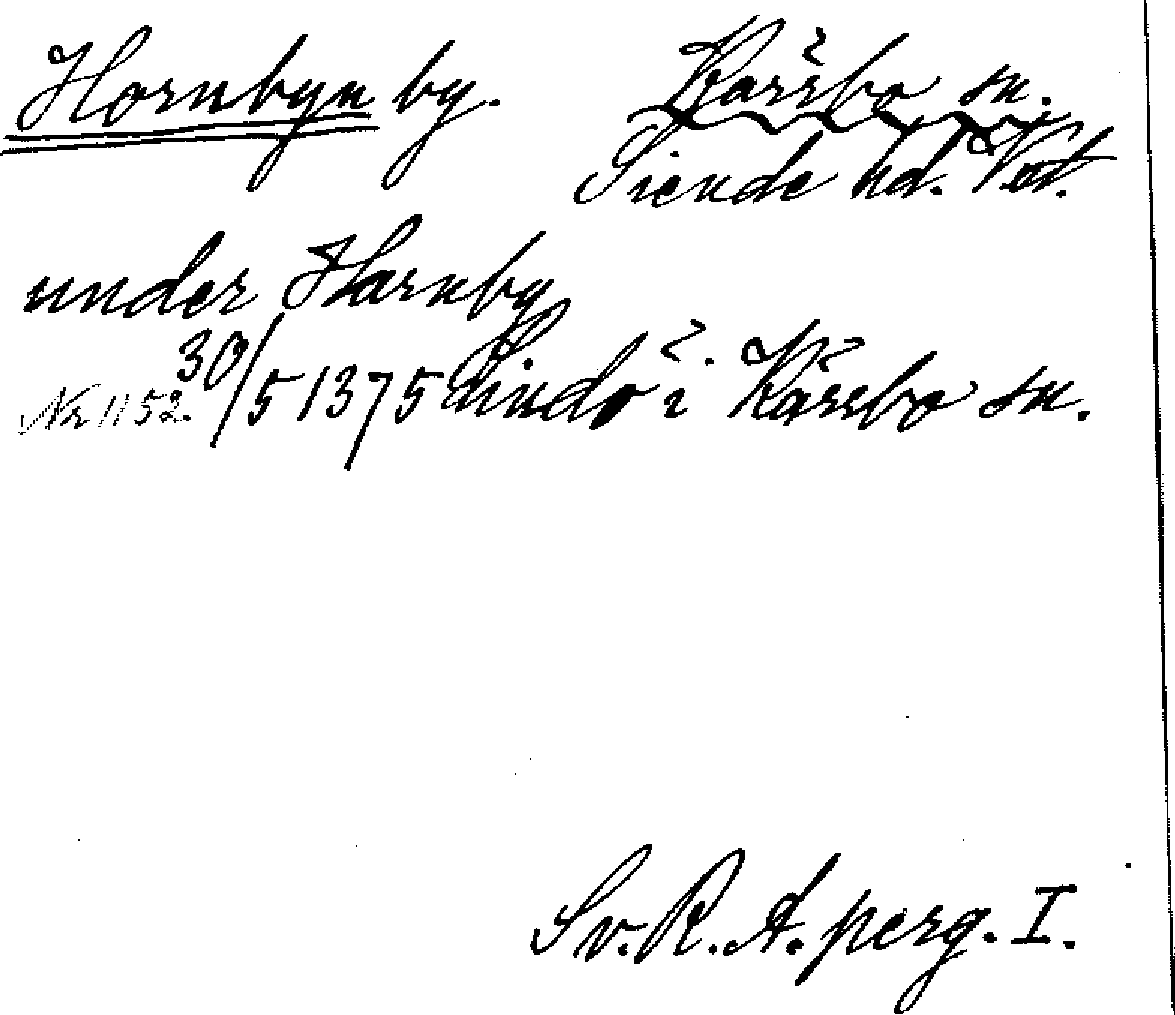 Hornbyn by. Kärrbo sn.
Siende hd. Vst.
under Harnby
30/5 1375 Lindö i Kärrbo sn.
Nr 1152.
Sv. R. A. perg. I.